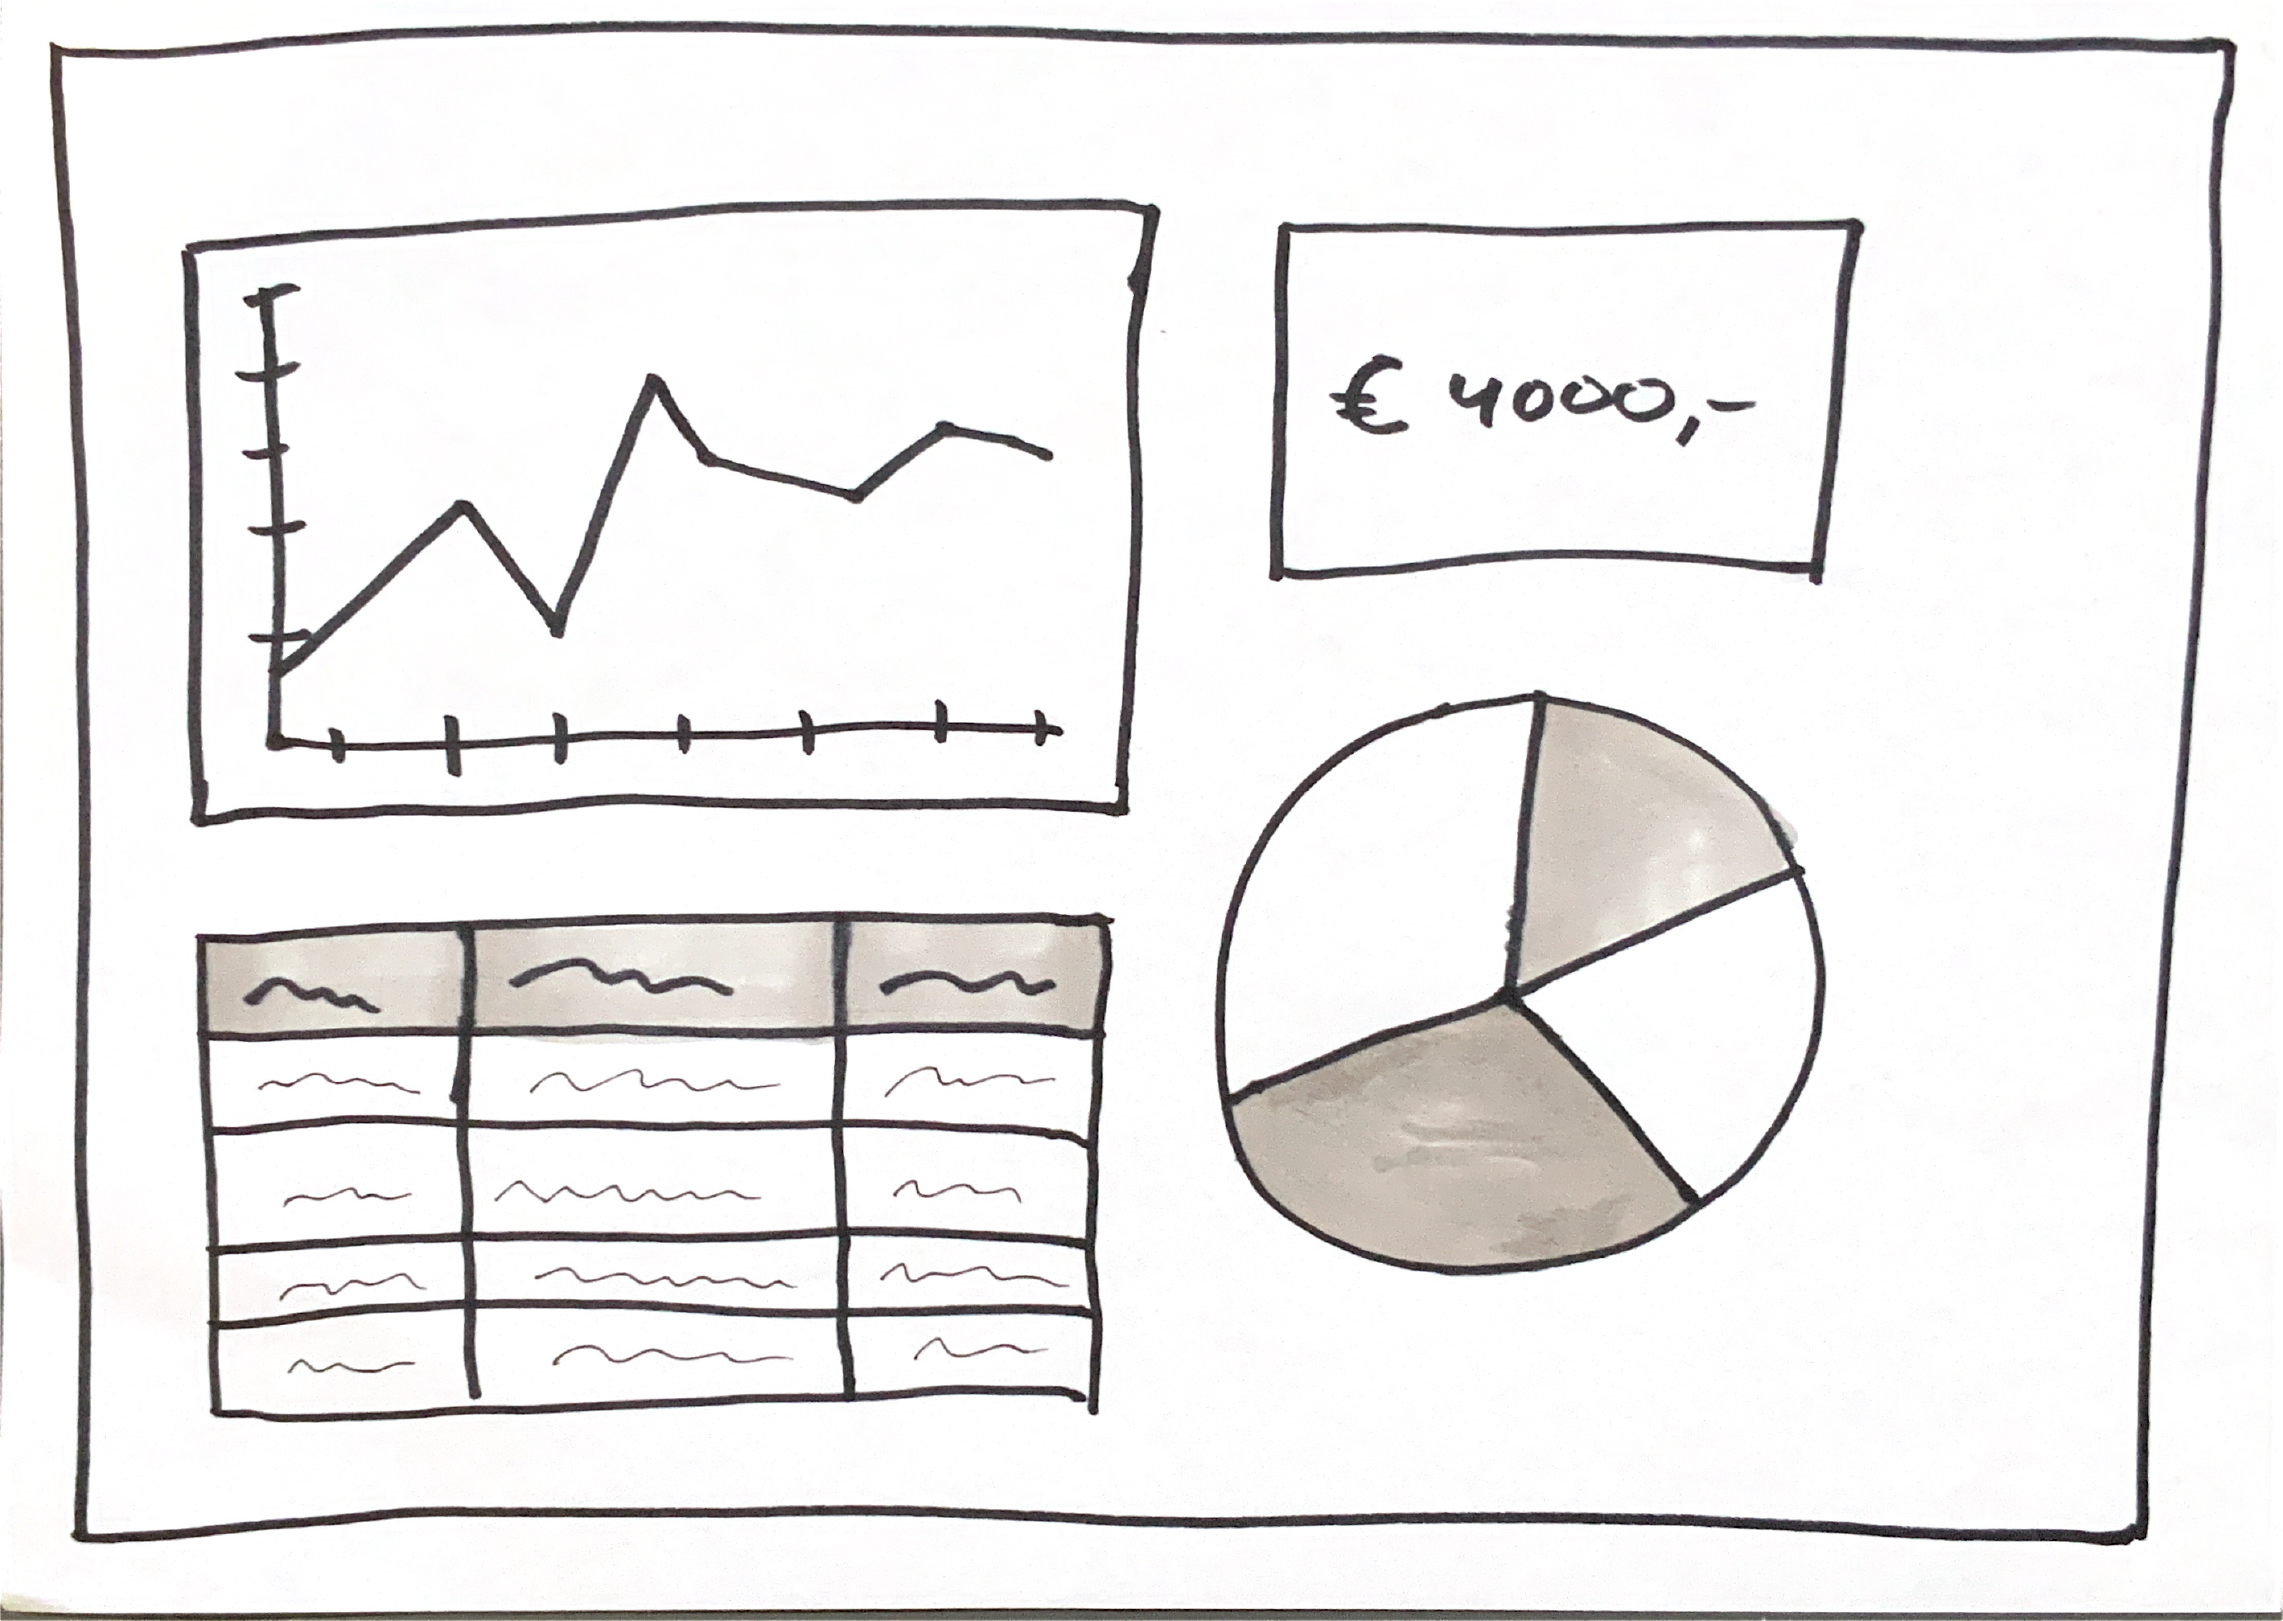 € 4000,-